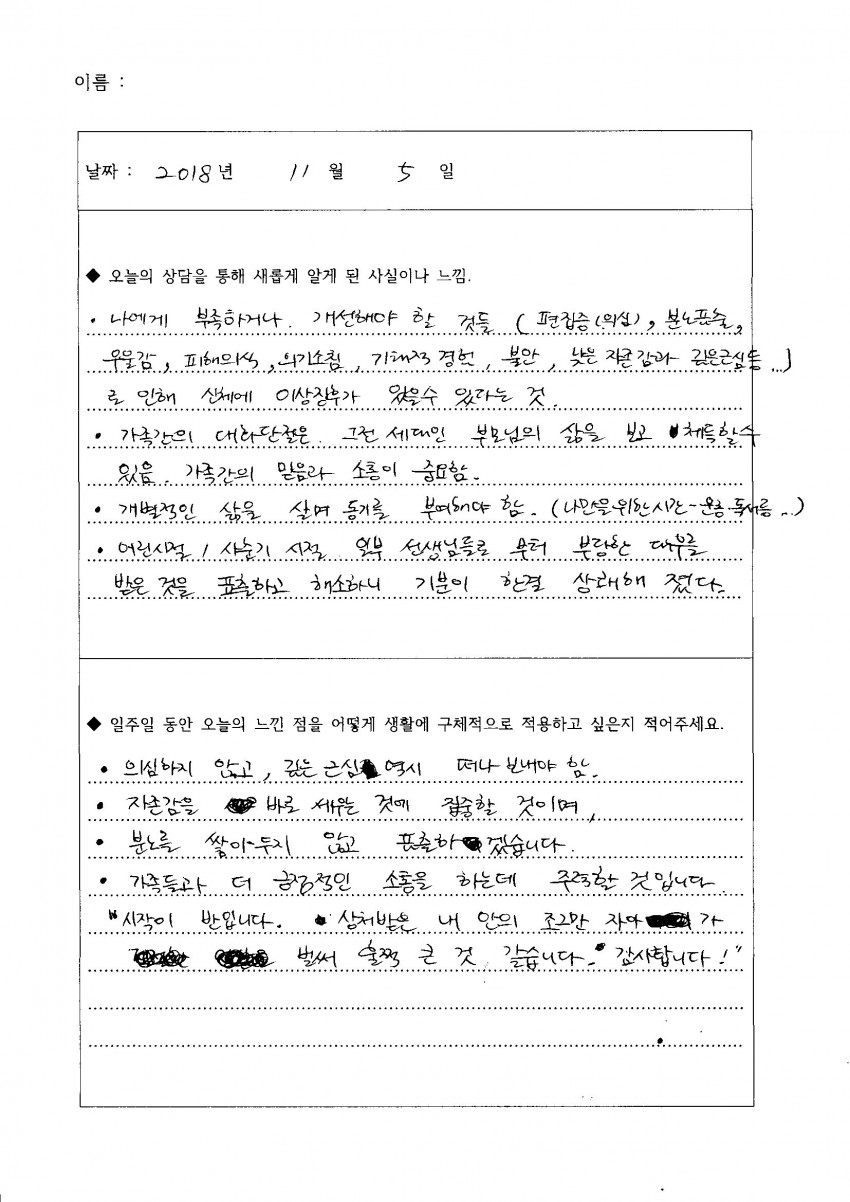 이름 :
날짜 : 2018년 11월 5일
◆ 오늘의 상담을 통해 새롭게 알게 된 사실이나 느낌.
• 나에게 부족하거나 개선해야 할 것들 ( 편집증(의심), 분노표출,
우울감, 피해의식, 의기소침, 기태적 경험, 불안, 낮은 자존감과 깊은근심등 ...)
로 인해 신체에 이상징후가 있을수 있다는 것.
• 가족간의 대화단절은 그전 세대인 부모님의 삶을 보고 체득할수
있음. 가족간의 믿음과 소통이 중요함.
• 개별적인 삶을 살며 동기를 부여해야 함. (나만을 위한시간-운동·독서등 ...)
• 어린시절 / 사춘기 시절 일부 선생님들로 부터 부당한 대우를
받은 것을 표출하고 해소하니 기분이 한결 상쾌해 졌다.
◆ 일주일 동안 오늘의 느낀 점을 어떻게 생활에 구체적으로 적용하고 싶은지 적어주세요.
• 의심하지 않고, 깊은 근심 역시 떠나 보내야 함.
• 자존감을 바로 세우는 것에 집중할 것이며,
• 분노를 쌓아두지 않고 표출하겠습니다.
• 가족들과 더 긍정적인 소통을 하는데 주력할 것입니다.
"시작이 반입니다. 상처받은 내 안의 조그만 자아가
벌써 훌쩍 큰 것 같습니다. 감사합니다!"